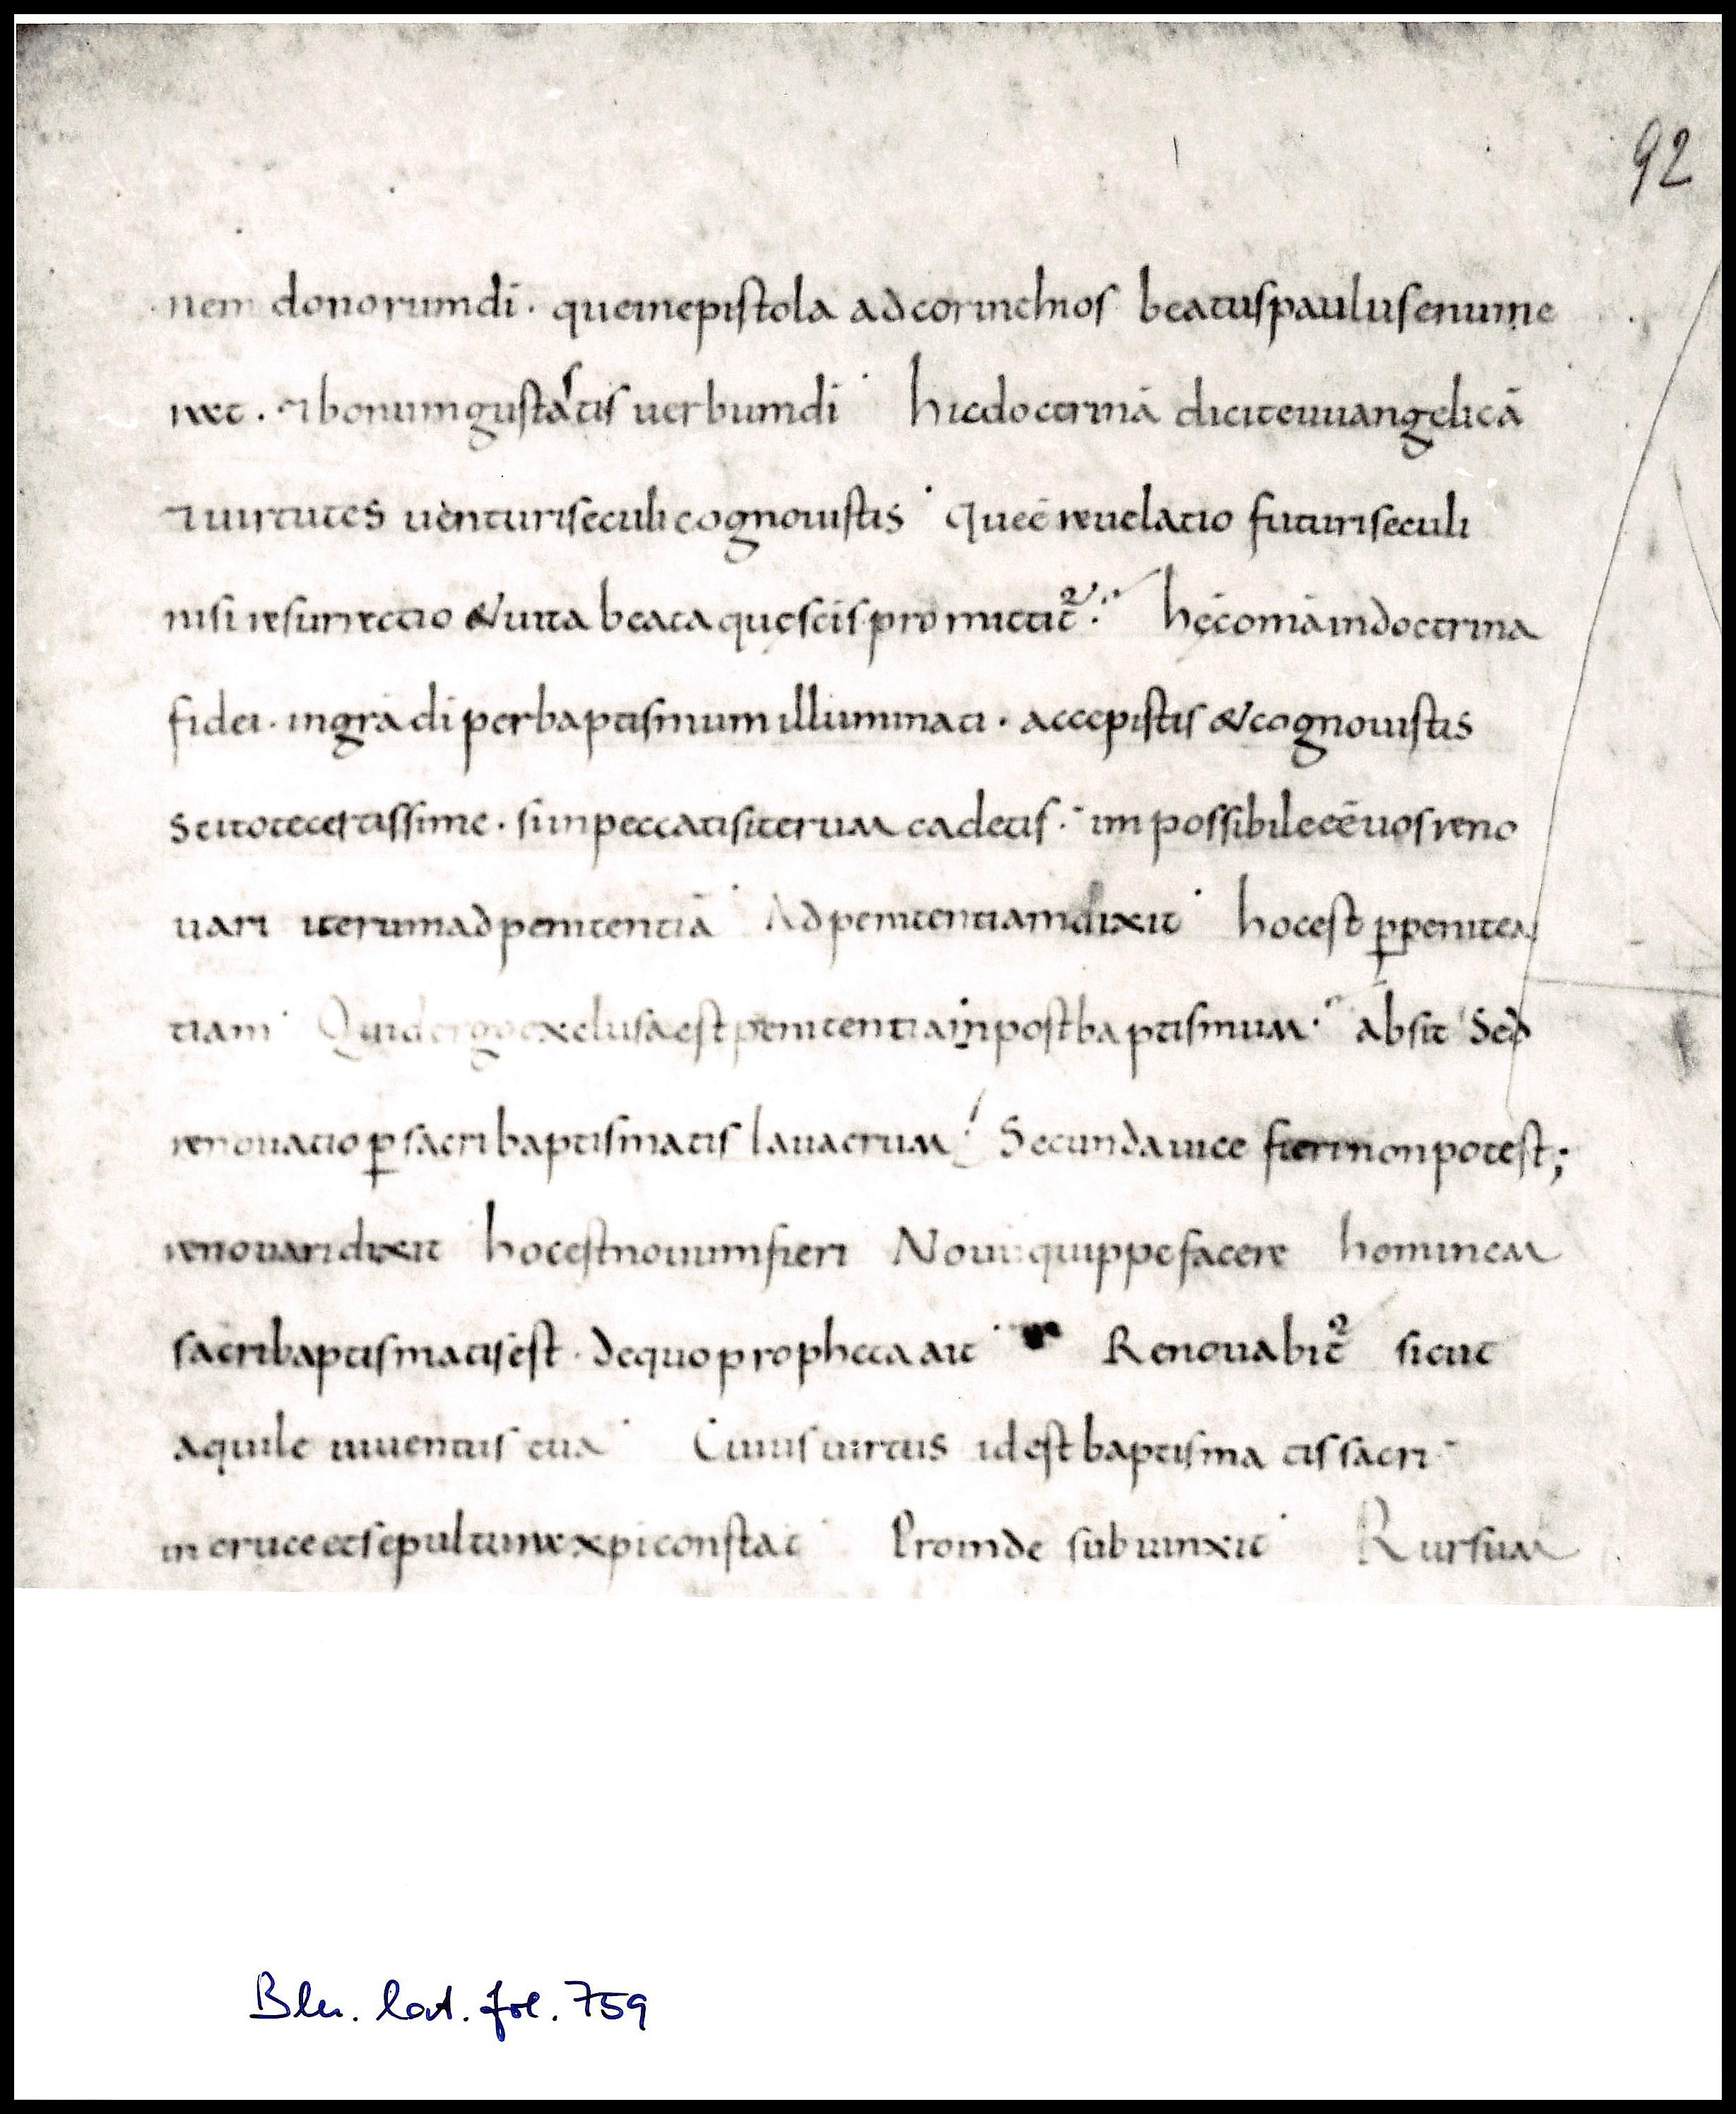 92
nem donorum di · que in epistola ad corinthios beatus paulus enume
rat · & bonum gustastis uerbum di hic doctrinā dicit euuangelicā
& uirtutes uenturi seculi cognouistis que ē reuelatio futuri seculi
nisi resurrectio & uita beata quę scīs promittit̄ hęc om̄ia in doctrina
fidei · in gr̄a di per baptismum illuminati · accepistis & cognouistis
scitote certissime · si in peccatis iterum cadetis impossibile eē uos reno
uari iterum ad penitentiā Ad penitentiam dixit hoc est p̱ peniten
tiam Quid ergo exclusa est penitentia in post baptismum absit Sed
renouatio p̱ sacri baptismatis lauacrum Secunda uice fieri non potest ;
renouari dixit hoc est nouum fieri Nouū quippe facere hominem
sacri baptismatis est · de quo propheta ait Renouabit̄ sicut
aquile iuuentus tua Cuius uirtus id est baptismatis sacri
in cruce et sepultura xpi constat Proinde subiunxit Rursum
Bln. lat. fol. 759